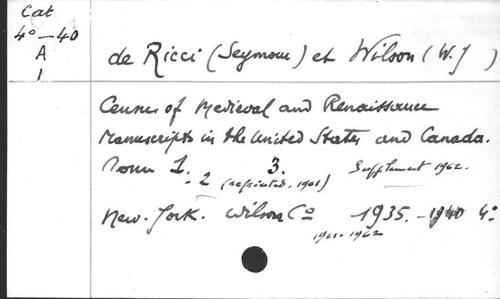 Cat
4°-40
A
1
de Ricci (Seymour) et Wilson (W.J)
Census of Medieval and Renaissance
Manuscripts in the United States and Canada.
Tome 1. 3. Supplement 1962.
- 2 (reprinted. 1961)
New-York. Wilson C° 1935.-1940 4°
1961-1962